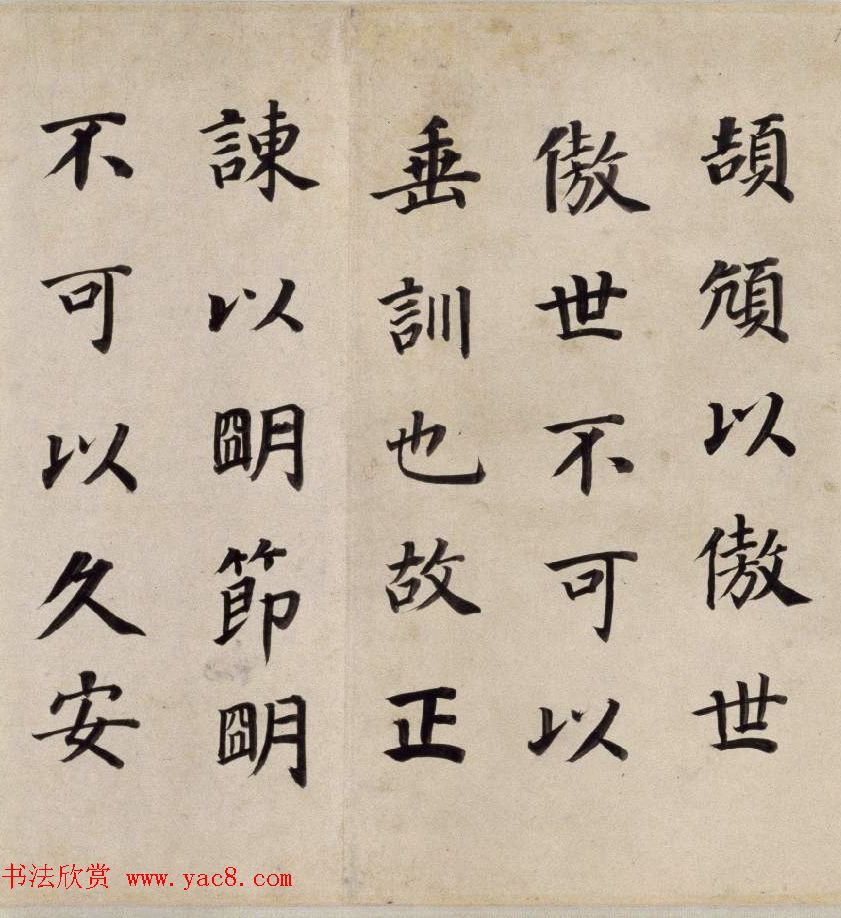 頡頏以傲世
傲世不可以
垂訓也故正
諫以明節明
不可以久安
书法欣赏 www.yac8.com